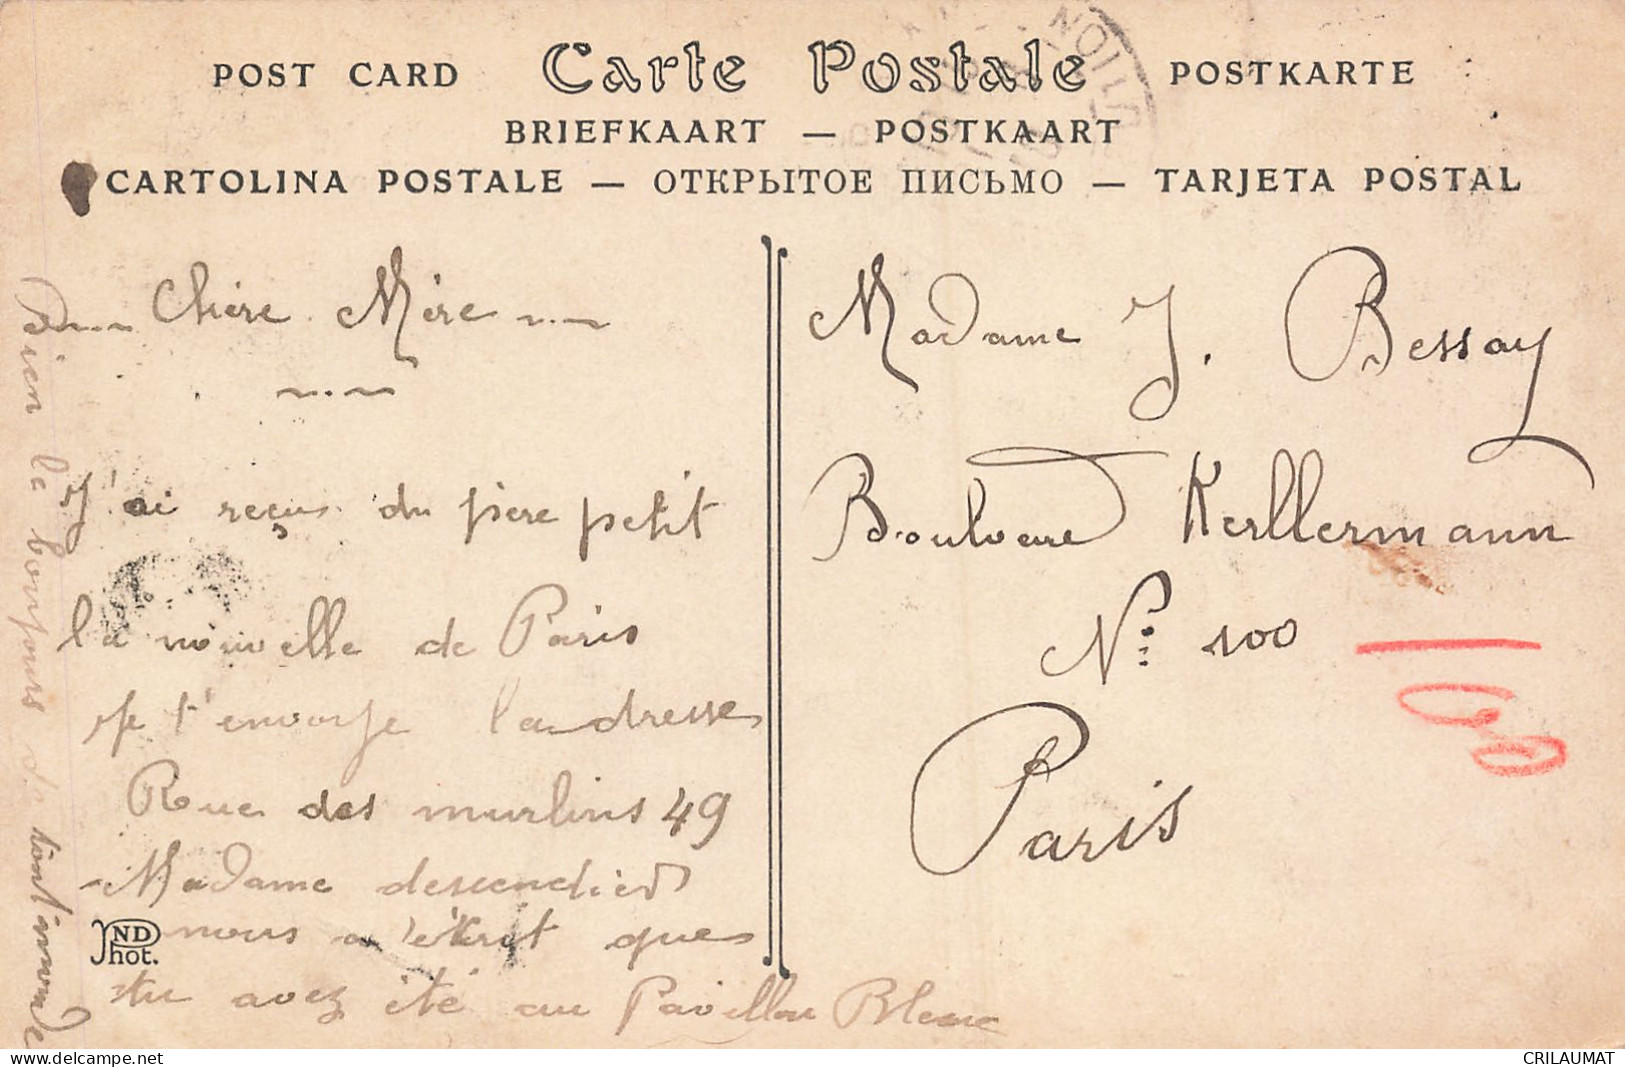 POST CARD Carte Postale POSTKARTE
BRIEFKAART — POSTKAART
CARTOLINA POSTALE — ОТКРЫТОЕ ПИСЬМО — TARJETA POSTAL
Chère Mère
J'ai reçus du père petit
la nouvelle de Paris
je t'envoije la dresse
Rue des murlins 49
Madame descendier
nous a écrit ques
tu avez été au Pavillon Bleue
Bien le bonjours de tout'imonde
ND Phot.
Madame J. Bessay
Boulvare Kerllermann
N° 100
Paris
www.delcampe.net
CRILAUMAT